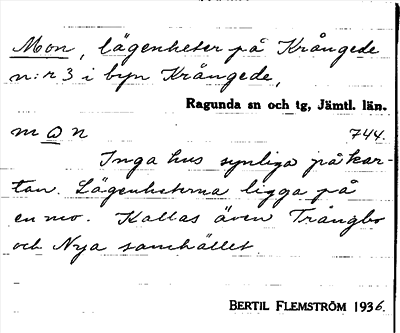 Mon, lägenheter på Krångede
n:r 3 i byn Krångede,
Ragunda sn och tg, Jämtl. län.
mon 744.
Inga hus synliga på kar-
tan. Lägenheterna ligga på
en mo. Kallas även Trångbo
och Nya samhället
BERTIL FLEMSTRÖM 1936.